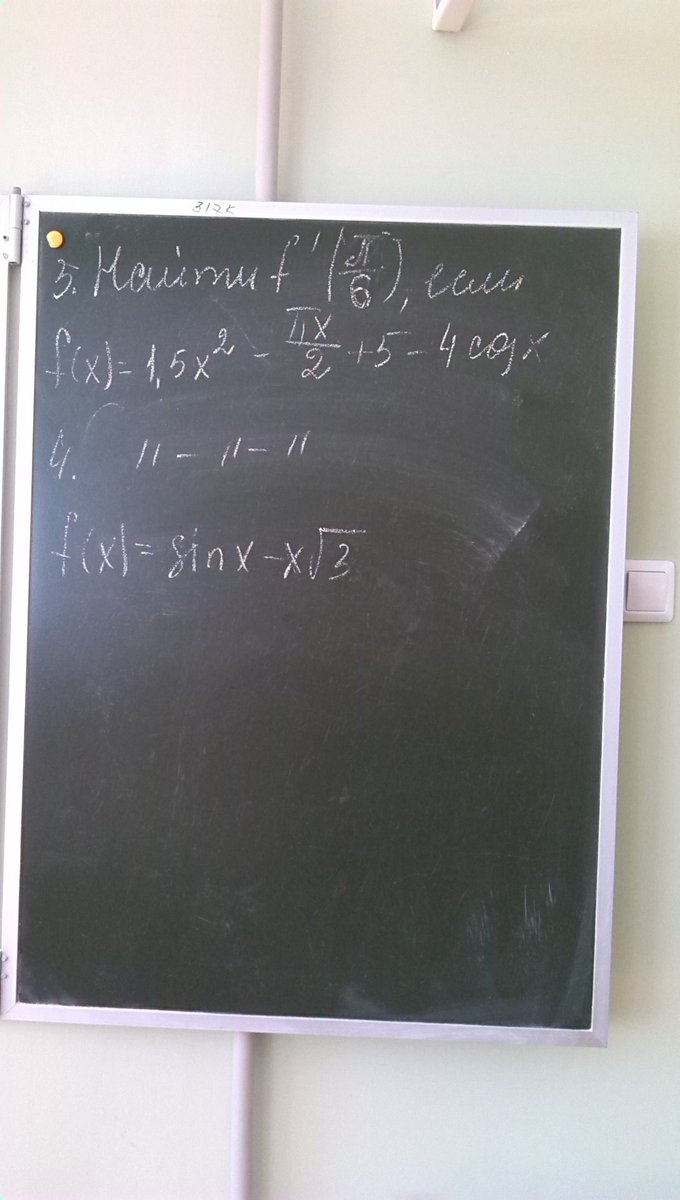 312к
3. Найти f'(π/6), если
f(x)=1,5x² - πx/2 +5 - 4cosx
4. " - " - "
f(x)= sinx - x√3